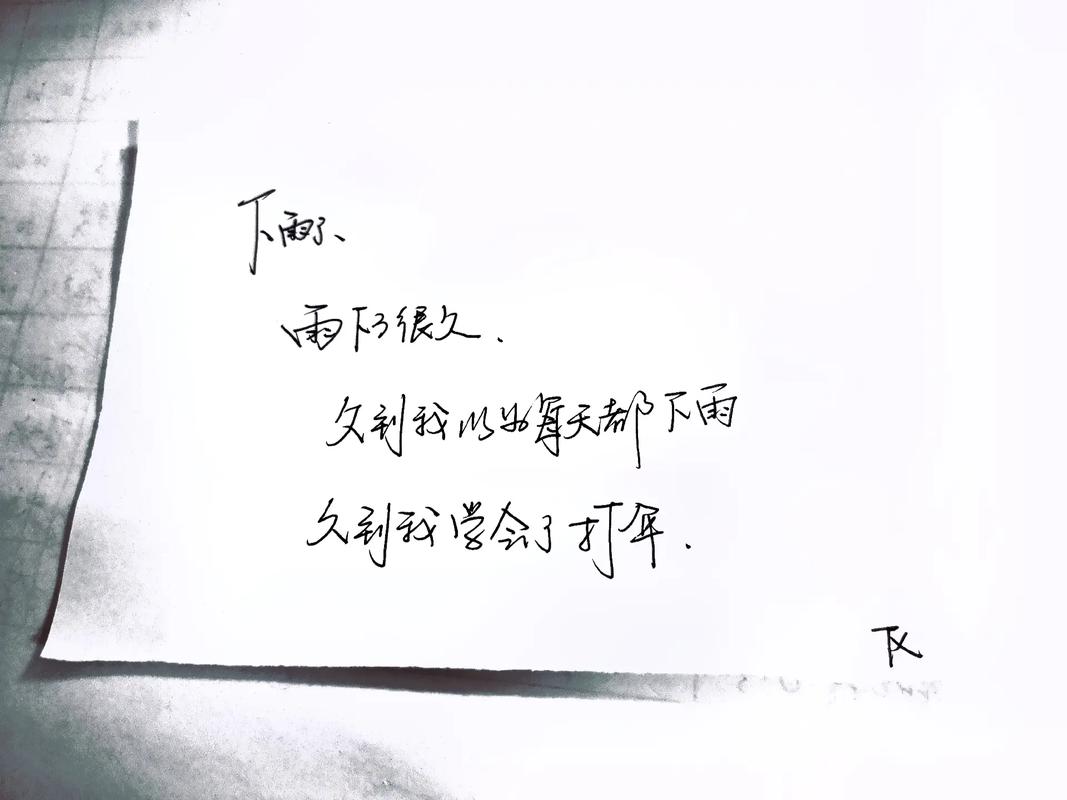 下雨了、
雨下了很久.
久到我以为每天都下雨
久到我学会了打伞.